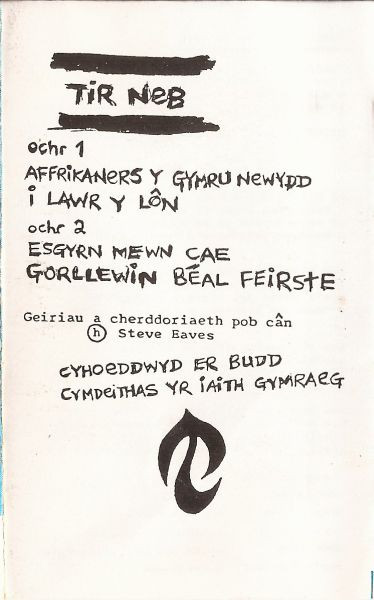 TIR NEB
ochr 1
AFFRIKANERS Y GYMRU NEWYDD
I LAWR Y LÔN
ochr 2
ESGYRN MEWN CAE
GORLLEWIN BÉAL FEIRSTE
Geiriau a cherddoriaeth pob cân
ⓗ Steve Eaves
CYHOEDDWYD ER BUDD
CYMDEITHAS YR IAITH GYMRAEG